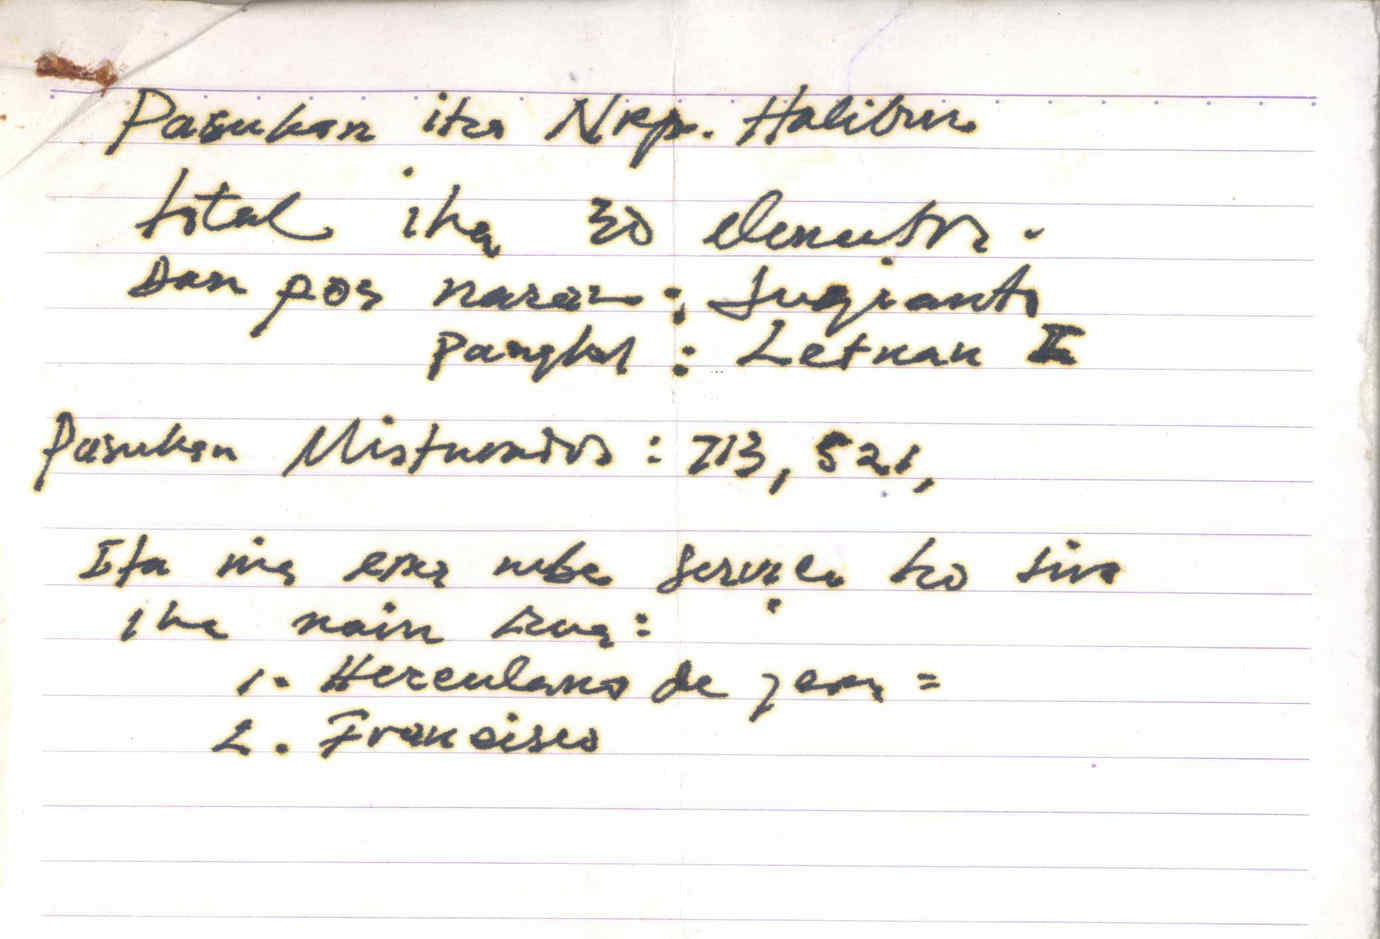 Pasukan iha Nrp. Halibur
total iha 30 elementos.
Dan pos naran : Sugianto
Pangkat : Letnan I
Pasukan Misturados : 713, 521,
Ita nia ema nebe serviçu ho sira
iha nain rua :
1. Herculano de
2. Francisco